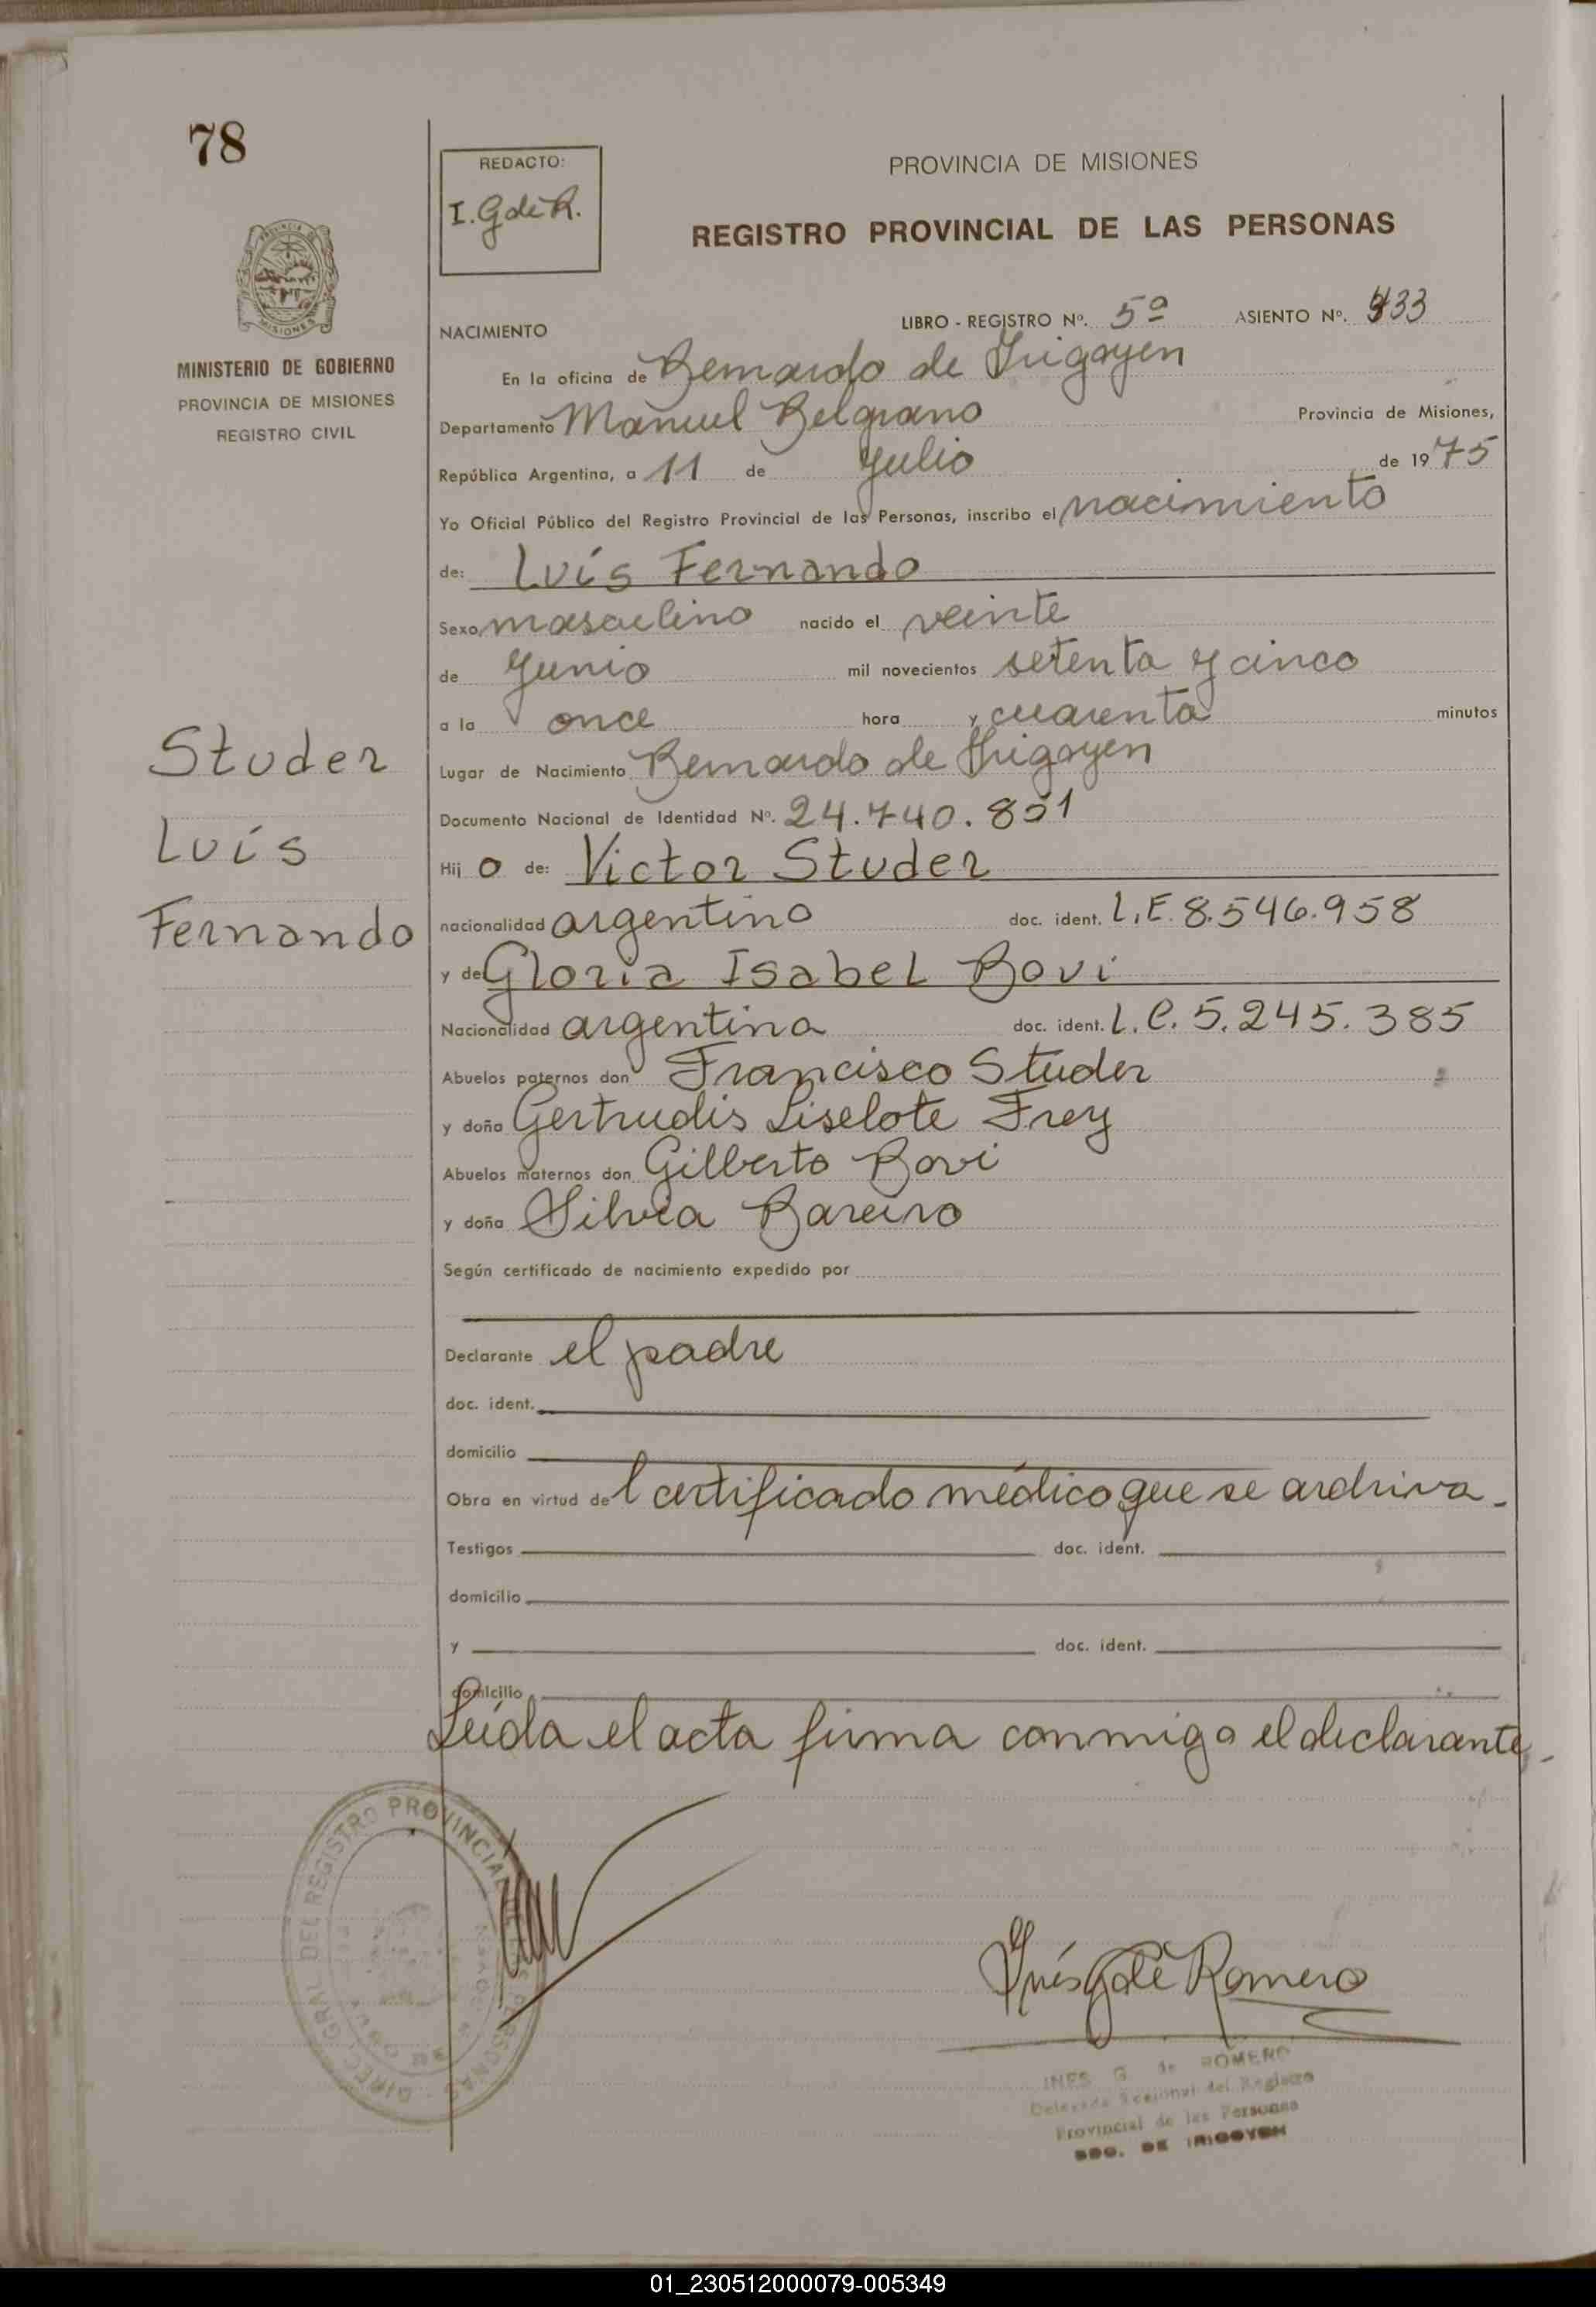 78
REDACTO:
I. G de R.
PROVINCIA DE MISIONES
REGISTRO PROVINCIAL DE LAS PERSONAS
MISIONES
MINISTERIO DE GOBIERNO
PROVINCIA DE MISIONES
REGISTRO CIVIL
NACIMIENTO
LIBRO - REGISTRO Nº. 5º ASIENTO Nº. 433
En la oficina de Bernardo de Irigoyen
Departamento Manuel Belgrano Provincia de Misiones,
República Argentina, a 11 de Julio de 1975
Yo Oficial Público del Registro Provincial de las Personas, inscribo el nacimiento
de: Luís Fernando
Sexo masculino nacido el veinte
de Junio mil novecientos setenta y cinco
a la once hora y cuarenta minutos
Lugar de Nacimiento Bernardo de Irigoyen
Documento Nacional de Identidad Nº. 24.740.851
Studer
Luís
Fernando
Hij o de: Victor Studer
nacionalidad argentino doc. ident. L.E. 8.546.958
y de Gloria Isabel Bovi
Nacionalidad argentina doc. ident. L.C. 5.245.385
Abuelos paternos don Francisco Studer
y doña Gertrudis Liselote Frey
Abuelos maternos don Gilberto Bovi
y doña Silvia Bareiro
Según certificado de nacimiento expedido por
Declarante el padre
doc. ident.
domicilio
Obra en virtud del certificado médico que se archiva.
Testigos doc. ident.
domicilio
y doc. ident.
domicilio
Leída el acta firma conmigo el declarante.
DIREC. GRAL DEL REGISTRO PROVINCIAL DE LAS PERSONAS
Inés G de Romero
INES G. de ROMERO
Delegada Regional del Registro
Provincial de las Personas
BDO. DE IRIGOYEN
01_230512000079-005349